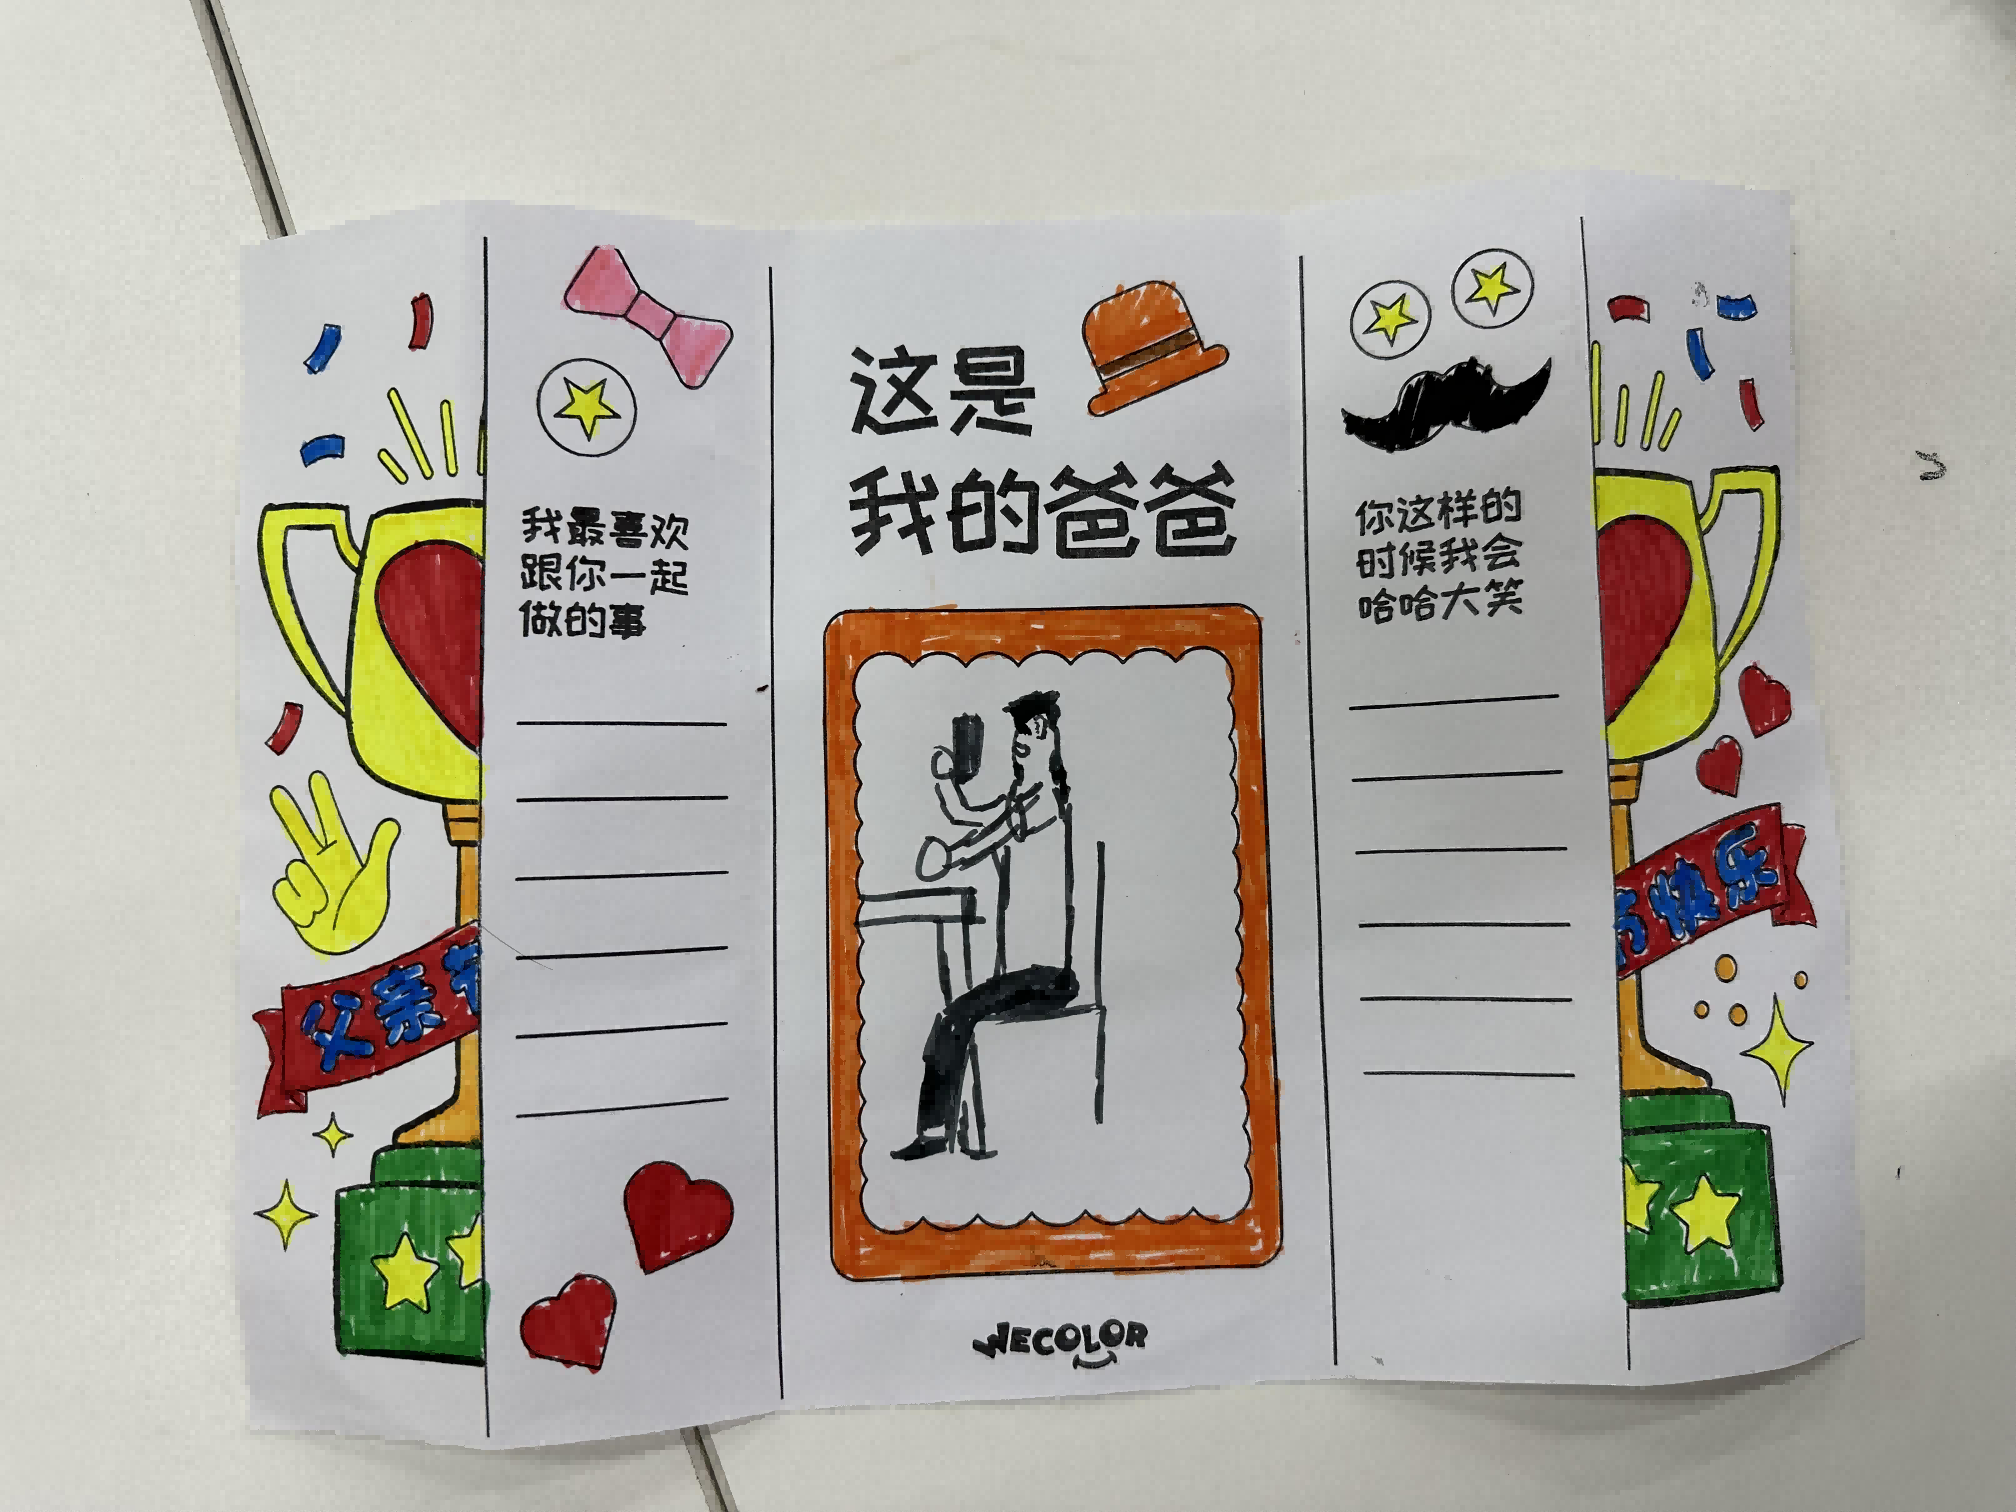 我最喜欢
跟你一起
做的事
这是
我的爸爸
你这样的
时候我会
哈哈大笑
父亲节
节快乐
WECOLOR